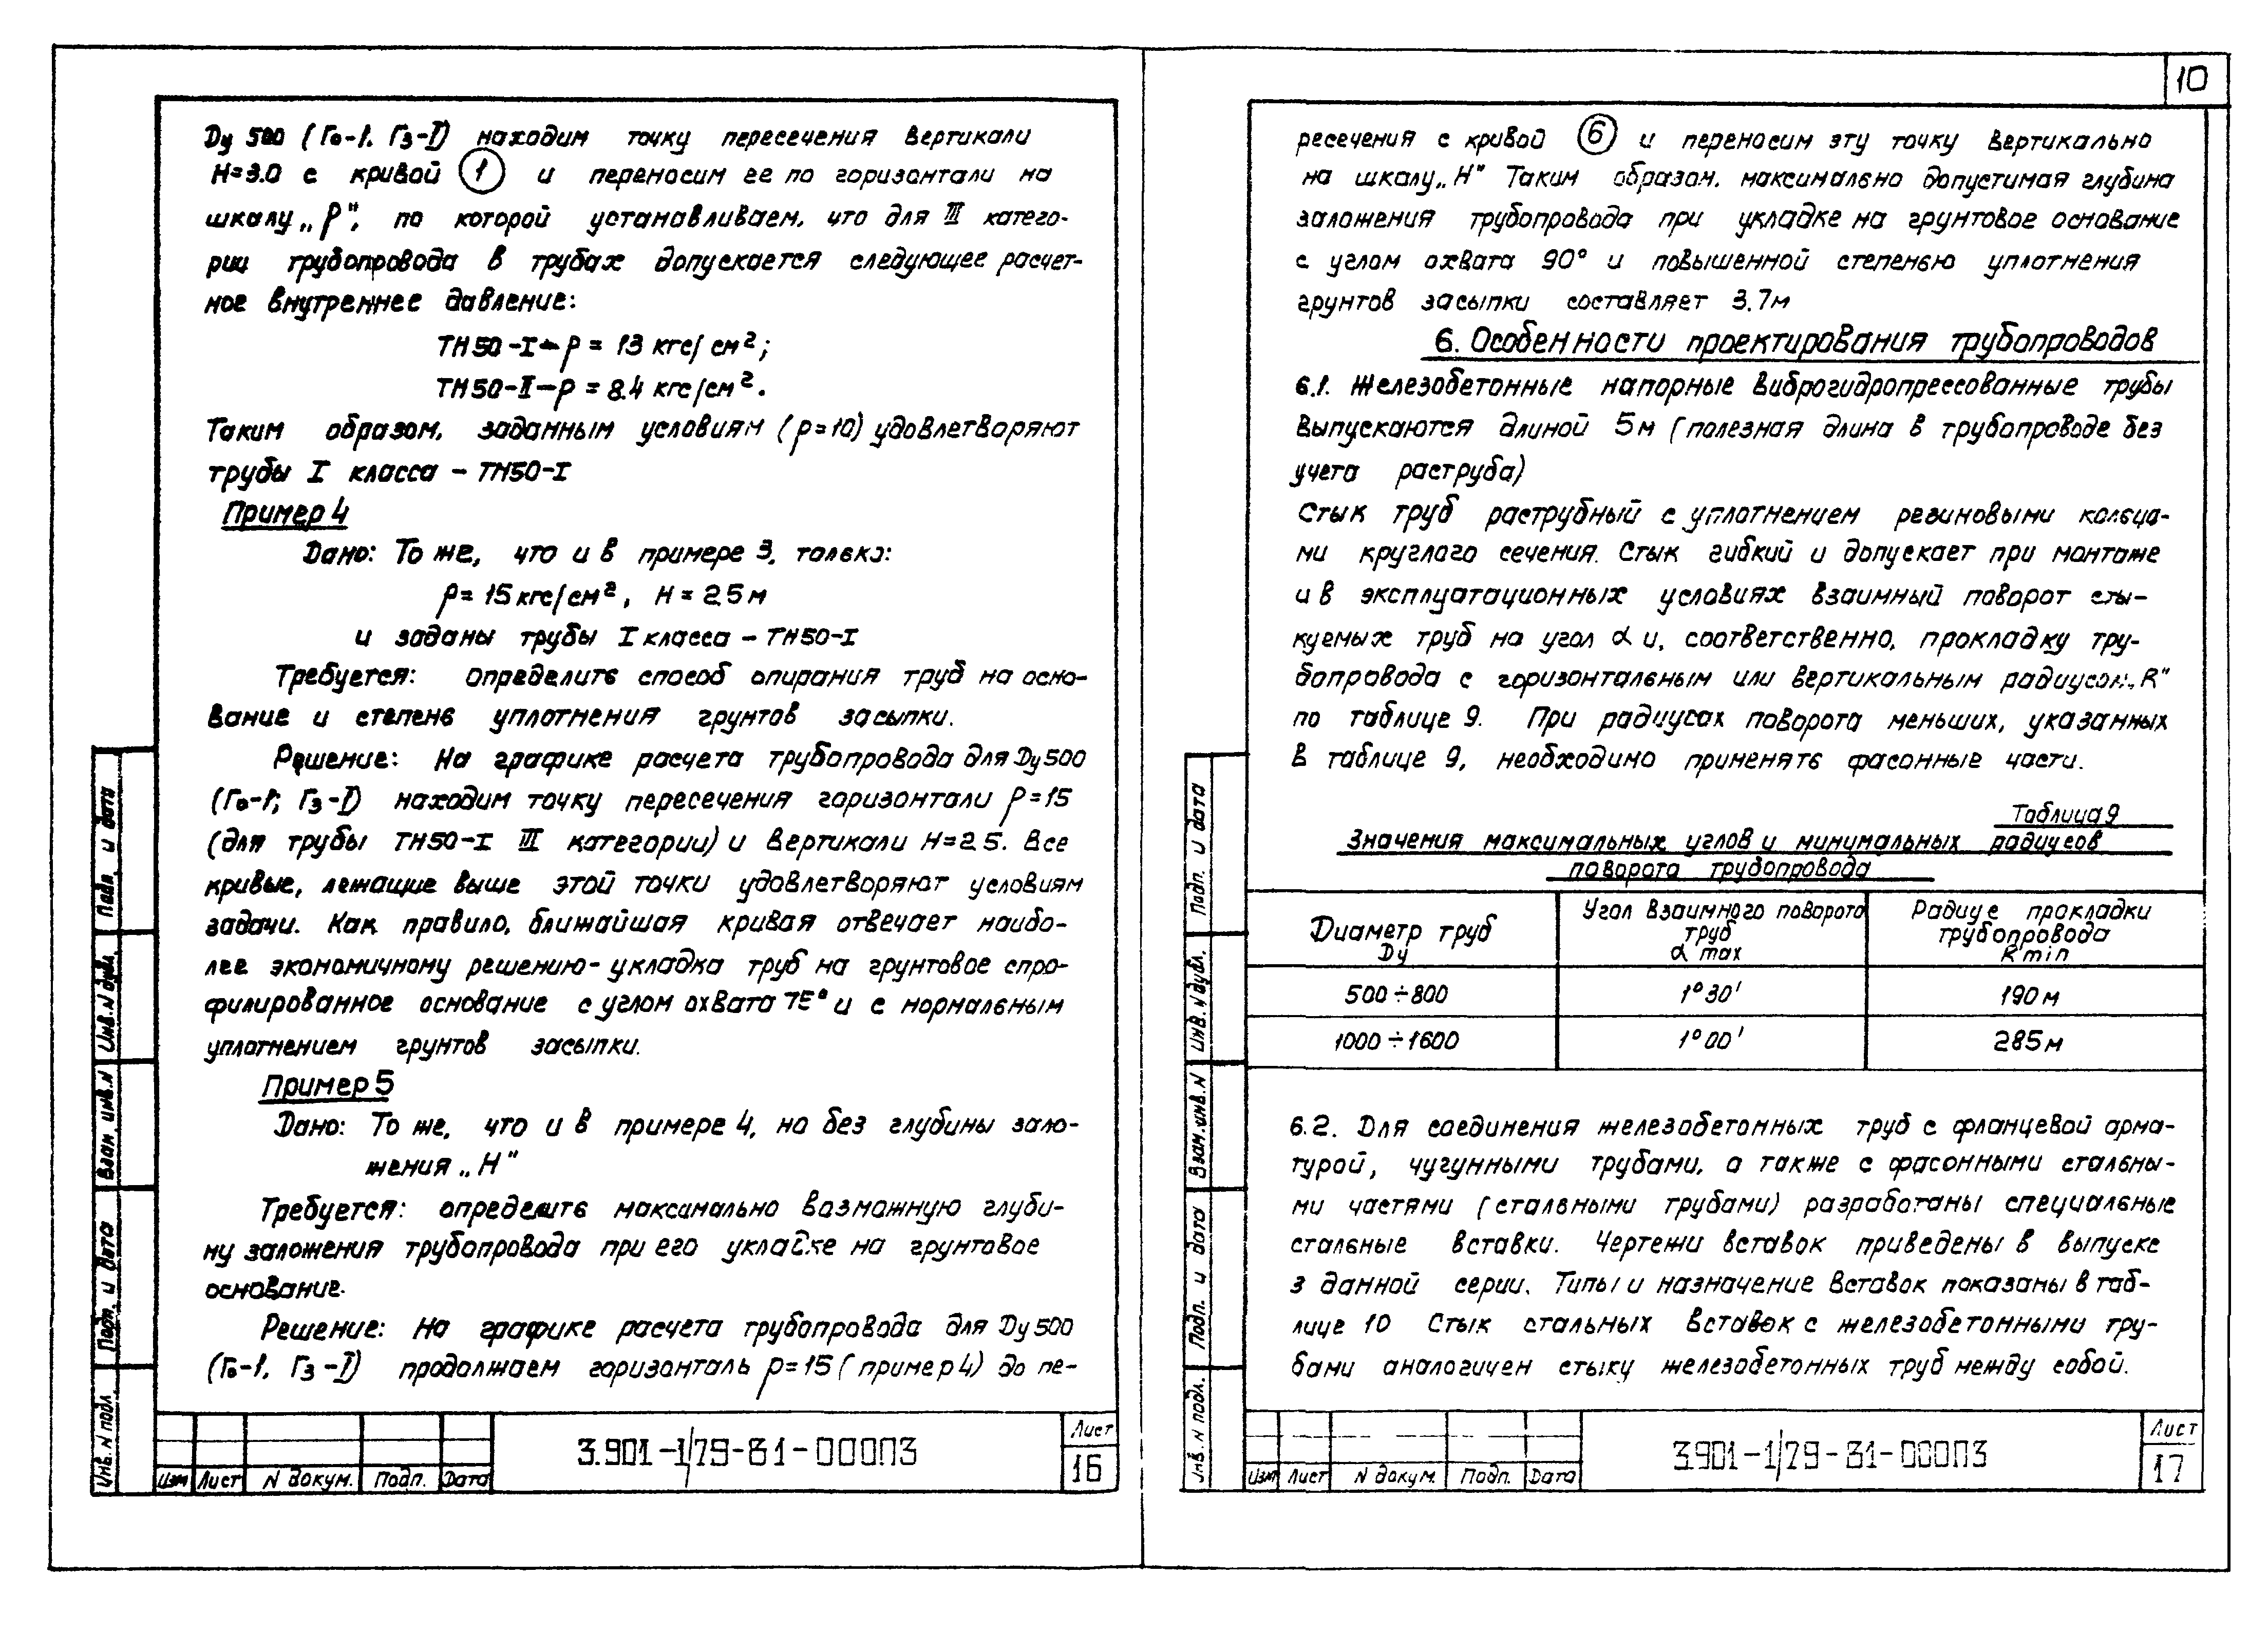 Ду 500 (Го-1. Гз-I) находим точку пересечения вертикали
Н=3.0 с кривой 1 и переносим ее по горизонтали на
шкалу „р", по которой устанавливаем, что для III катего-
рии трубопровода в трубах допускается следующее расчет-
ное внутреннее давление:
ТН50-I-р = 13 кгс/см²;
ТН50-II-р = 8.4 кгс/см².
Таким образом, заданным условиям (р=10) удовлетворяют
трубы I класса - ТН50-I
Пример 4
Дано: То же, что и в примере 3, только:
р=15 кгс/см², Н=2.5 м
и заданы трубы I класса - ТН50-I
Требуется: определить способ опирания труб на осно-
вание и степень уплотнения грунтов засыпки.
Решение: На графике расчета трубопровода для Ду 500
(Го-1; Гз-I) находим точку пересечения горизонтали р=15
(для трубы ТН50-I III категории) и вертикали Н=2.5. Все
кривые, лежащие выше этой точки удовлетворяют условиям
задачи. Как правило, ближайшая кривая отвечает наибо-
лее экономичному решению-укладка труб на грунтовое спро-
филированное основание с углом охвата 75° и с нормальным
уплотнением грунтов засыпки.
Пример 5
Дано: То же, что и в примере 4, но без глубины зало-
жения „Н"
Требуется: определить максимально возможную глуби-
ну заложения трубопровода при его укладке на грунтовое
основание.
Решение: На графике расчета трубопровода для Ду 500
(Го-1. Гз-I) продолжаем горизонталь р=15 (пример 4) до пе-
Инв. N подл. Подп. и дата Взам инв. N Инв. N дубл. Подп. и дата
Изм Лист N докум. Подп. Дата
3.901-1/79-В1-00ПЗ
Лист
16
10
ресечения с кривой 6 и переносим эту точку вертикально
на шкалу „Н" Таким образом. максимально допустимая глубина
заложения трубопровода при укладке на грунтовое основание
с углом охвата 90° и повышенной степенью уплотнения
грунтов засыпки составляет 3.7м
6. Особенности проектирования трубопроводов
6.1. Железобетонные напорные виброгидропрессованные трубы
выпускаются длиной 5м (полезная длина в трубопроводе без
учета раструба)
Стык труб раструбный с уплотнением резиновыми кольца-
ми круглого сечения. Стык гибкий и допускает при монтаже
и в эксплуатационных условиях взаимный поворот сты-
куемых труб на угол α и, соответственно, прокладку тру-
бопровода с горизонтальным или вертикальным радиусом „R"
по таблице 9. При радиусах поворота меньших, указанных
в таблице 9, необходимо применять фасонные части.
Таблица 9
Значения максимальных углов и минимальных радиусов
поворота трубопровода
Диаметр труб Ду | Угол взаимного поворота труб α max | Радиус прокладки трубопровода R min
500÷800 | 1°30' | 190 м
1000÷1600 | 1°00' | 285 м
6.2. Для соединения железобетонных труб с фланцевой арма-
турой, чугунными трубами, а также с фасонными стальны-
ми частями (стальными трубами) разработаны специальные
стальные вставки. Чертежи вставок приведены в выпуске
3 данной серии. Типы и назначение вставок показаны в таб-
лице 10 Стык стальных вставок с железобетонными тру-
бами аналогичен стыку железобетонных труб между собой.
Инв. N подл. Подп. и дата Взам. инв. N Инв. N дубл. Подп. и дата
Изм Лист N докум. Подп. Дата
3.901-1/79-В1-00ПЗ
Лист
17